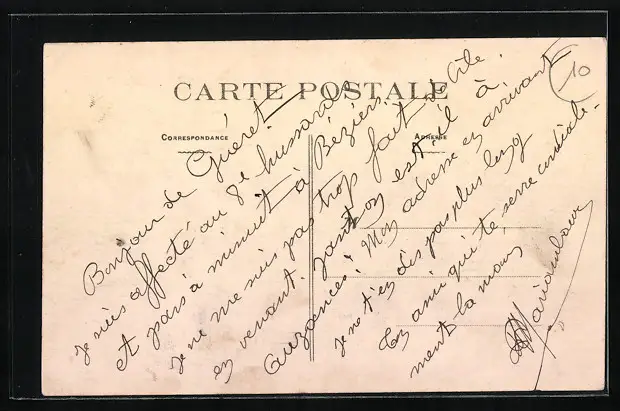 10
CARTE POSTALE
CORRESPONDANCE
ADRESSE
Bonjour de Guéret
Je suis affecté au 8e hussards
et pars à minuit à Béziers.
Je ne me suis pas trop fait de bile
en venant. est-il à
Auzances? Mon adresse en arrivant
Je ne t'en dis pas plus long
Ton ami qui te serre cordiale-
ment la main